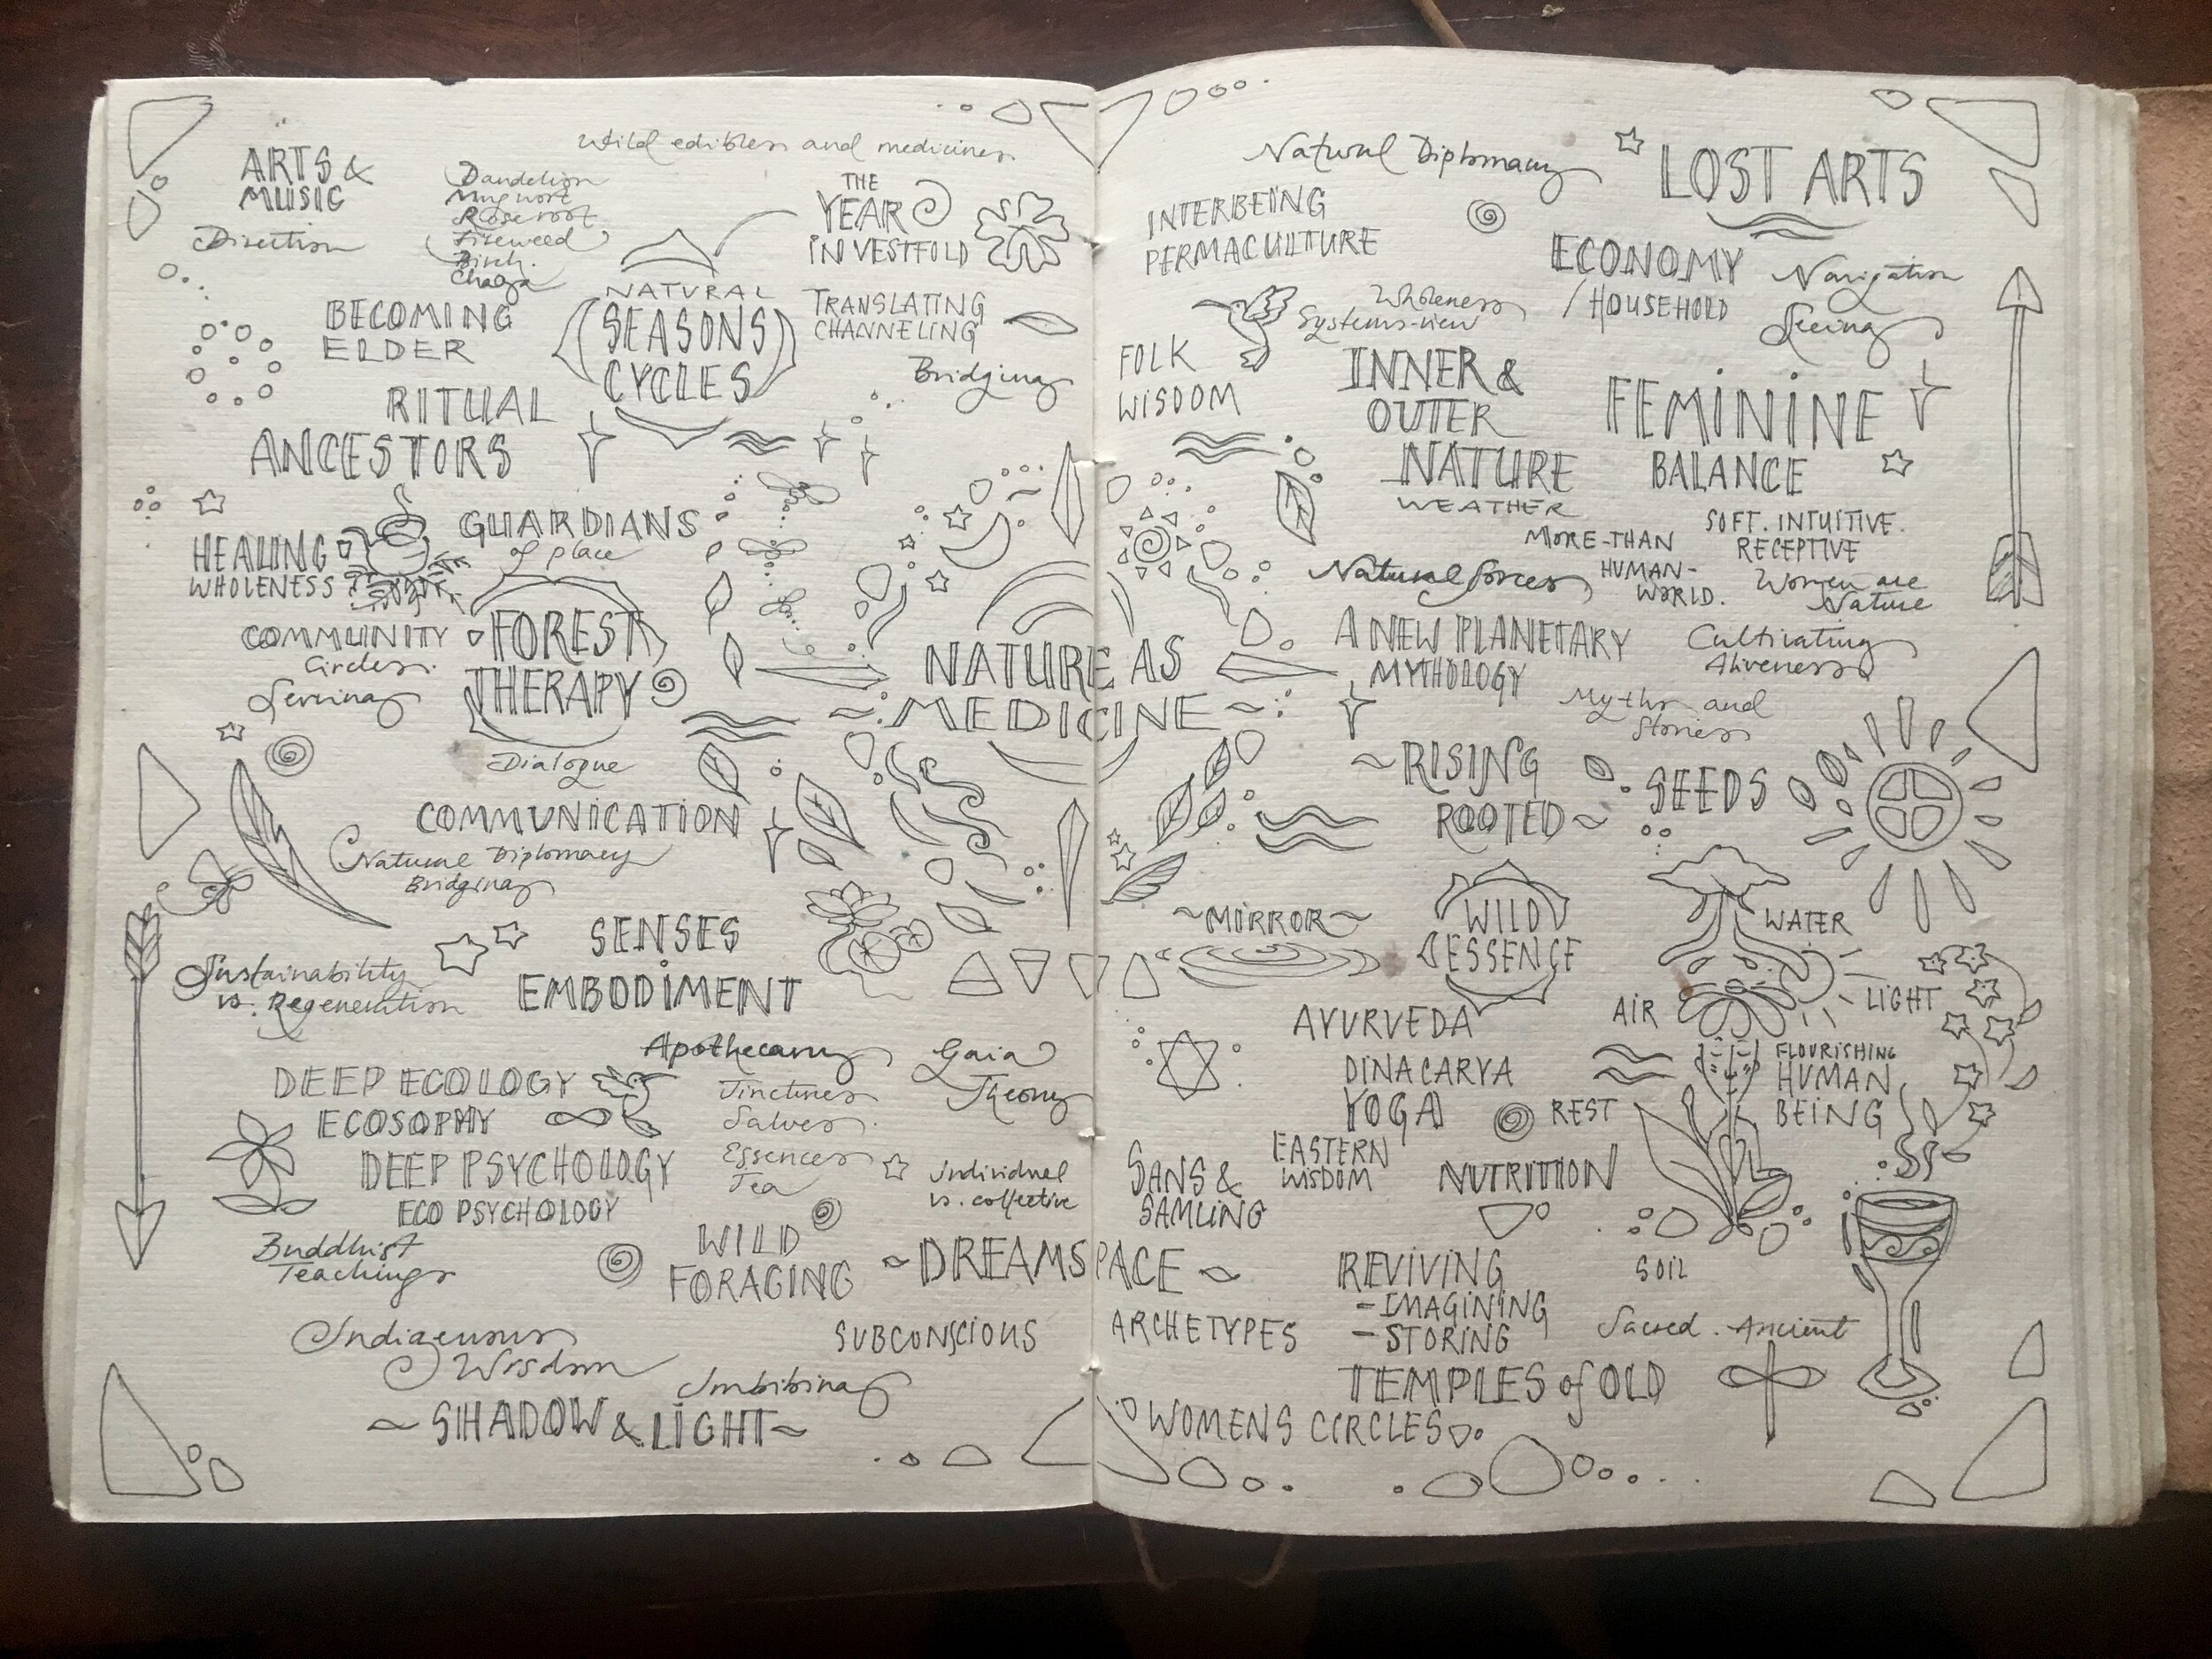 Wild edibles and medicines
ARTS &
MUSIC
Direction
Dandelion
Mugwort
Roseroot
Fireweed
Birch.
Chaga
THE
YEAR
IN VESTFOLD
NATURAL
SEASONS
CYCLES
TRANSLATING
CHANNELING
Bridging
BECOMING
ELDER
RITUAL
ANCESTORS
GUARDIANS
of place
HEALING
WHOLENESS
FOREST
THERAPY
COMMUNITY
Circles.
Serving
Dialogue
COMMUNICATION
Natural Diplomacy
Bridging
SENSES
EMBODIMENT
Sustainability
vs. Regeneration
DEEP ECOLOGY
ECOSOPHY
DEEP PSYCHOLOGY
ECO PSYCHOLOGY
Buddhist
Teachings
Apothecary
Tinctures
Salves.
Essences
Tea
Gaia
Theory
Individual
vs. collective
WILD
FORAGING
Indigenous
Wisdom
Imbibing
~ SHADOW & LIGHT ~
SUBCONSCIOUS
NATURE AS
~ MEDICINE ~
~ DREAMSPACE ~
Natural Diplomacy
LOST ARTS
INTERBEING
PERMACULTURE
ECONOMY
/HOUSEHOLD
Navigation
Seeing
Wholeness
Systems-view
FOLK
WISDOM
INNER &
OUTER
NATURE
WEATHER
FEMININE
BALANCE
SOFT. INTUITIVE.
RECEPTIVE
MORE-THAN
HUMAN-
WORLD.
Women are
Nature
Natural forces
A NEW PLANETARY
MYTHOLOGY
Cultivating
Aliveness
Myths and
Stories
~RISING
ROOTED~
SEEDS
~MIRROR~
WILD
ESSENCE
WATER
LIGHT
AIR
AYURVEDA
DINACARYA
YOGA
REST
FLOURISHING
HUMAN
BEING
EASTERN
WISDOM
SANS &
SAMLING
NUTRITION
SOIL
REVIVING
- IMAGINING
- STORING
ARCHETYPES
Sacred . Ancient
TEMPLES of OLD
WOMENS CIRCLES